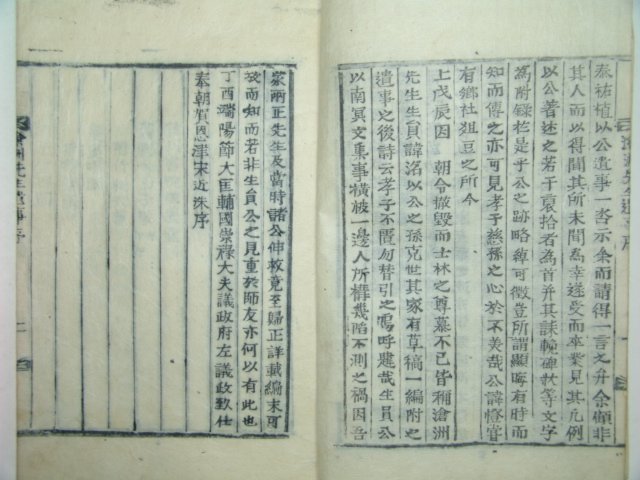 泰祐植以公遺事一沓示余而請得一言之弁余顧非
其人而以得聞其所未聞為幸遂受而卒業見其凡例
以公著述之若干裒拾者為首并其誄輓碑狀等文字
為附錄於是乎公之跡略縡可徵豈所謂顯晦有時而
知而傳之亦可見孝子慈孫之心於不美哉公諱惺官
有鄉社俎豆之所今
上戊辰因 朝令撤毀而士林之尊慕不已皆稱滄洲
先生生員諱洺以公之孫克世其家有草稿一編附之
遺事之後詩云孝子不匱勿替引之嗚呼建哉生員公
以南冥文集事橫被一邊人所構幾陷不測之禍因吾
家兩正先生及當時諸公伸救竟至歸正詳載編末可
攷而知而若非生員公之見重於師友亦何以有此也
丁酉端陽節大匡輔國崇祿大夫議政府左議政致仕
奉朝賀恩津宋近洙序